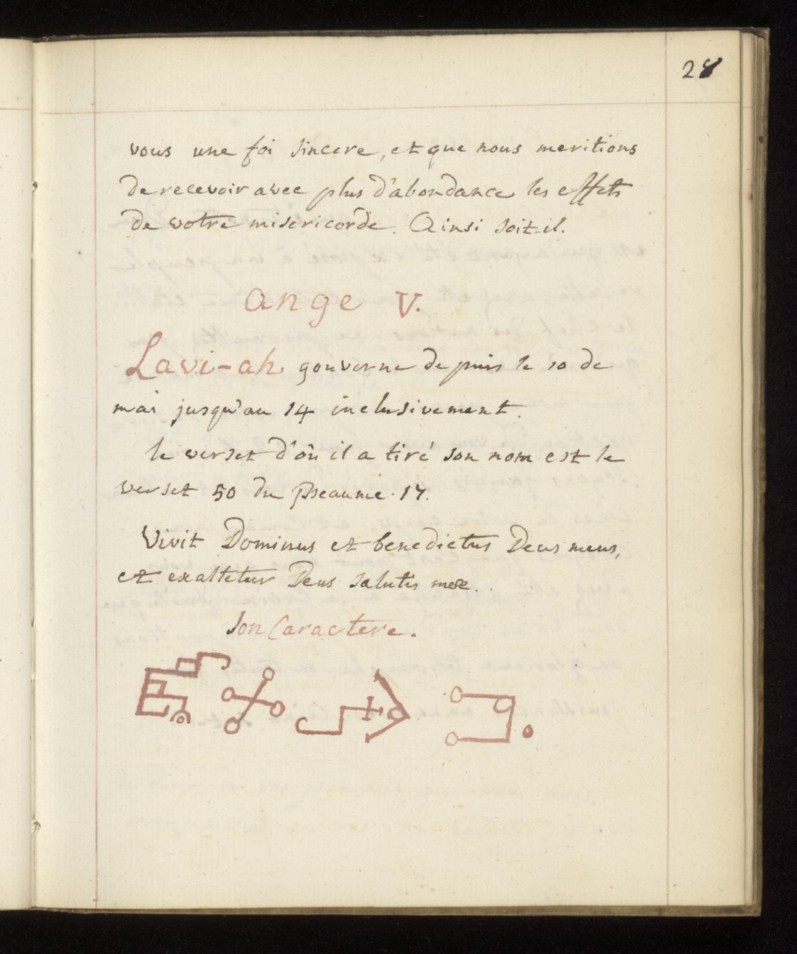 28
vous une foi sincere, et que nous meritions
de recevoir avec plus d'abondance les effets
de votre misericorde. Ainsi soit-il.
ange V.
Lavi-ah gouverne depuis le 10 de
mai jusqu'au 14 inclusivement.
le verset d'où il a tiré son nom est le
verset 50 du Pseaume. 17.
Vivit Dominus et benedictus Deus meus,
et exaltetur Deus salutis meæ.
Son Caractere.